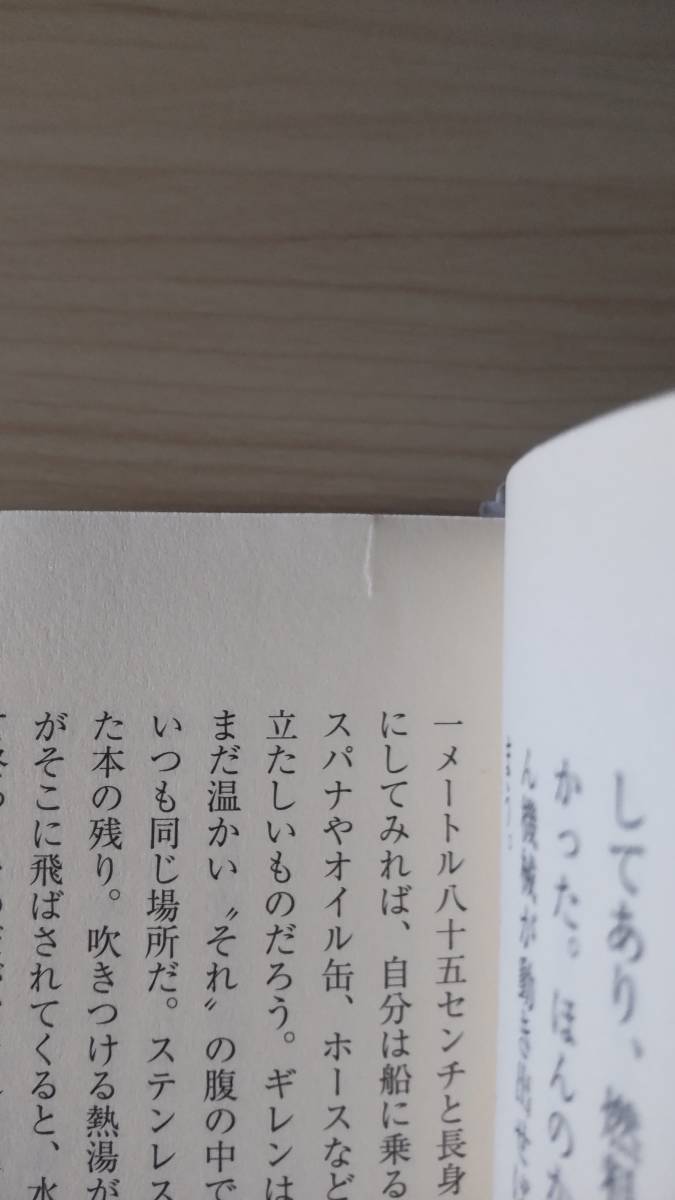 してあり、燃料
かった。ほんのわ
ん機械が動き出せば
まう。
一メートル八十五センチと長身
にしてみれば、自分は船に乗る
スパナやオイル缶、ホースなど
立たしいものだろう。ギレンは
まだ温かい〝それ〟の腹の中で
いつも同じ場所だ。ステンレス
た本の残り。吹きつける熱湯が
がそこに飛ばされてくると、水